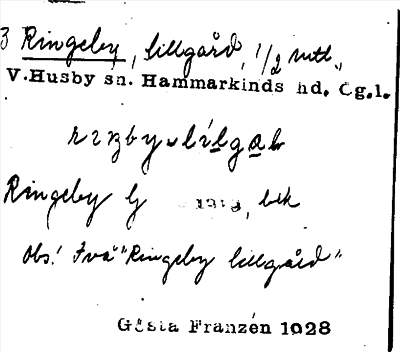 3 Ringeby, lillgård, 1/2 mtl.,
V.Husby sn. Hammarkinds hd. Ög.l.
Ringeby Lj 1918, bek
Obs! Två "Ringeby lillgård"
Gösta Franzén 1928